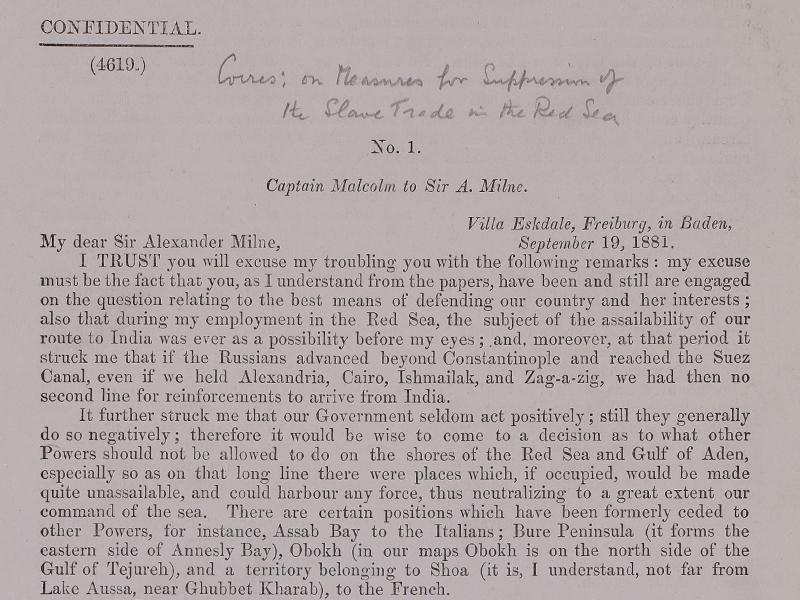 CONFIDENTIAL.
(4619.)
Corres: on Measures for Suppression of
the Slave Trade in the Red Sea
No. 1.
Captain Malcolm to Sir A. Milne.
Villa Eskdale, Freiburg, in Baden,
My dear Sir Alexander Milne, September 19, 1881.
I TRUST you will excuse my troubling you with the following remarks : my excuse
must be the fact that you, as I understand from the papers, have been and still are engaged
on the question relating to the best means of defending our country and her interests ;
also that during my employment in the Red Sea, the subject of the assailability of our
route to India was ever as a possibility before my eyes ; and, moreover, at that period it
struck me that if the Russians advanced beyond Constantinople and reached the Suez
Canal, even if we held Alexandria, Cairo, Ishmailak, and Zag-a-zig, we had then no
second line for reinforcements to arrive from India.
It further struck me that our Government seldom act positively ; still they generally
do so negatively ; therefore it would be wise to come to a decision as to what other
Powers should not be allowed to do on the shores of the Red Sea and Gulf of Aden,
especially so as on that long line there were places which, if occupied, would be made
quite unassailable, and could harbour any force, thus neutralizing to a great extent our
command of the sea. There are certain positions which have been formerly ceded to
other Powers, for instance, Assab Bay to the Italians ; Bure Peninsula (it forms the
eastern side of Annesly Bay), Obokh (in our maps Obokh is on the north side of the
Gulf of Tejureh), and a territory belonging to Shoa (it is, I understand, not far from
Lake Aussa, near Ghubbet Kharab), to the French.